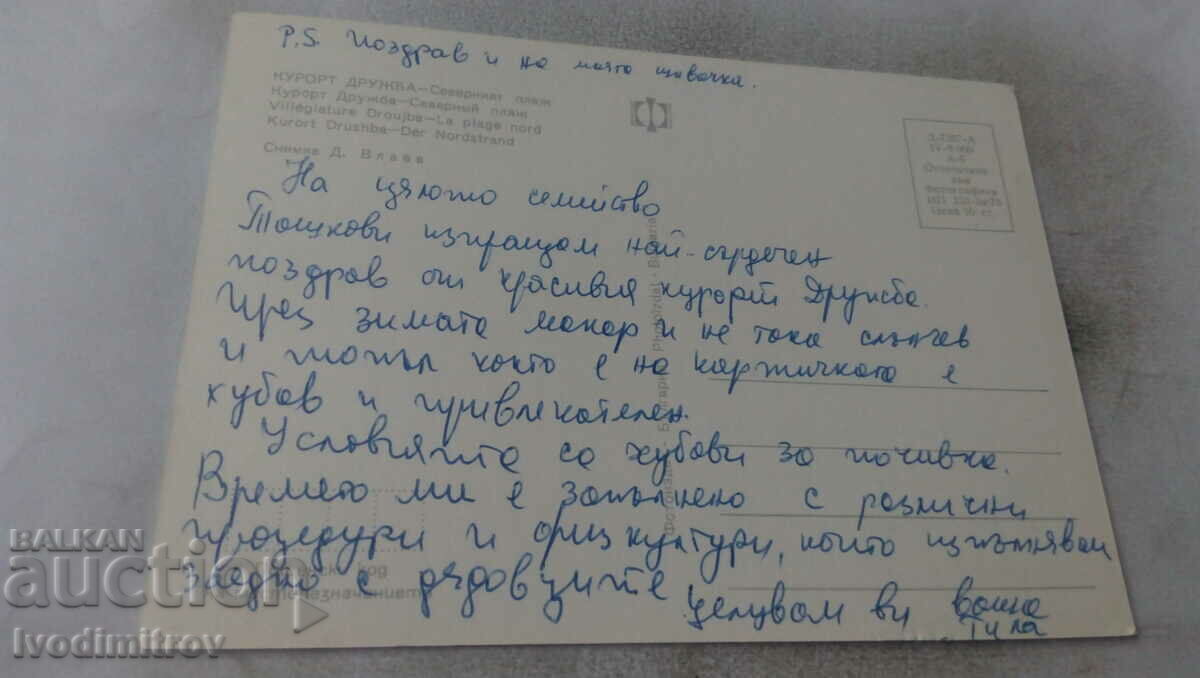 P.S. Поздрав и на моята шавачка.
КУРОРТ ДРУЖБА—Северният плаж
Курорт Дружба—Северный пляж
Villégiature Droujba—La plage nord
Kurort Drushba—Der Nordstrand
Снимка Д. Влаев
На цялото семейство
Тошкови изпращам най-сърдечен
поздрав от красивия курорт Дружба.
През зимата макар и не така слънчев
и топъл както е на картичката е
хубав и привлекателен.
Условията са хубави за почивка.
Времето ми е запълнено с различни
процедури и физкултури, които изпълнявам
заедно с дядовците
Целувам ви ваша
Photoizdat - Bulgaria
Отпечатано
във
фотографика
BALKAN
auction
Ivodimitrov